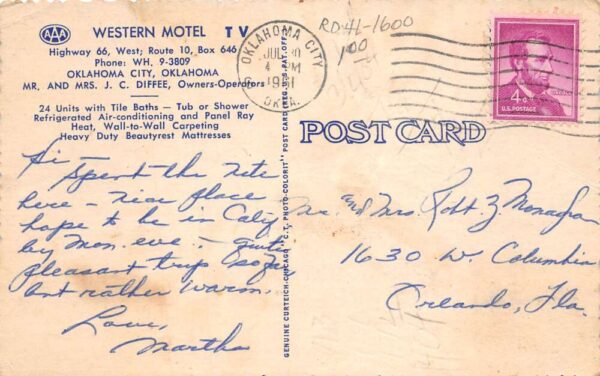 AAA WESTERN MOTEL TV
Highway 66, West; Route 10, Box 646
Phone: WH. 9-3809
OKLAHOMA CITY, OKLAHOMA
MR. AND MRS. J. C. DIFFEE, Owners-Operators
24 Units with Tile Baths — Tub or Shower
Refrigerated Air-conditioning and Panel Ray
Heat, Wall-to-Wall Carpeting
Heavy Duty Beautyrest Mattresses
Hi —
Spent the nite
here — nice place
hope to be in Calif
by Mon. eve. — quite
pleasant trip so far
but rather warm.
Love,
Martha
GENUINE CURTEICH-CHICAGO "C.T. PHOTO-COLORIT" POST CARD (REG. U.S. PAT. OFF.)
RD41-1600
100
OKLAHOMA CITY
JUL 30
4 PM
OKLA.
4¢
U.S. POSTAGE
LINCOLN
POST CARD
Mr. and Mrs. Robt. Z. Monaghan
1630 W. Columbia
Orlando, Fla.